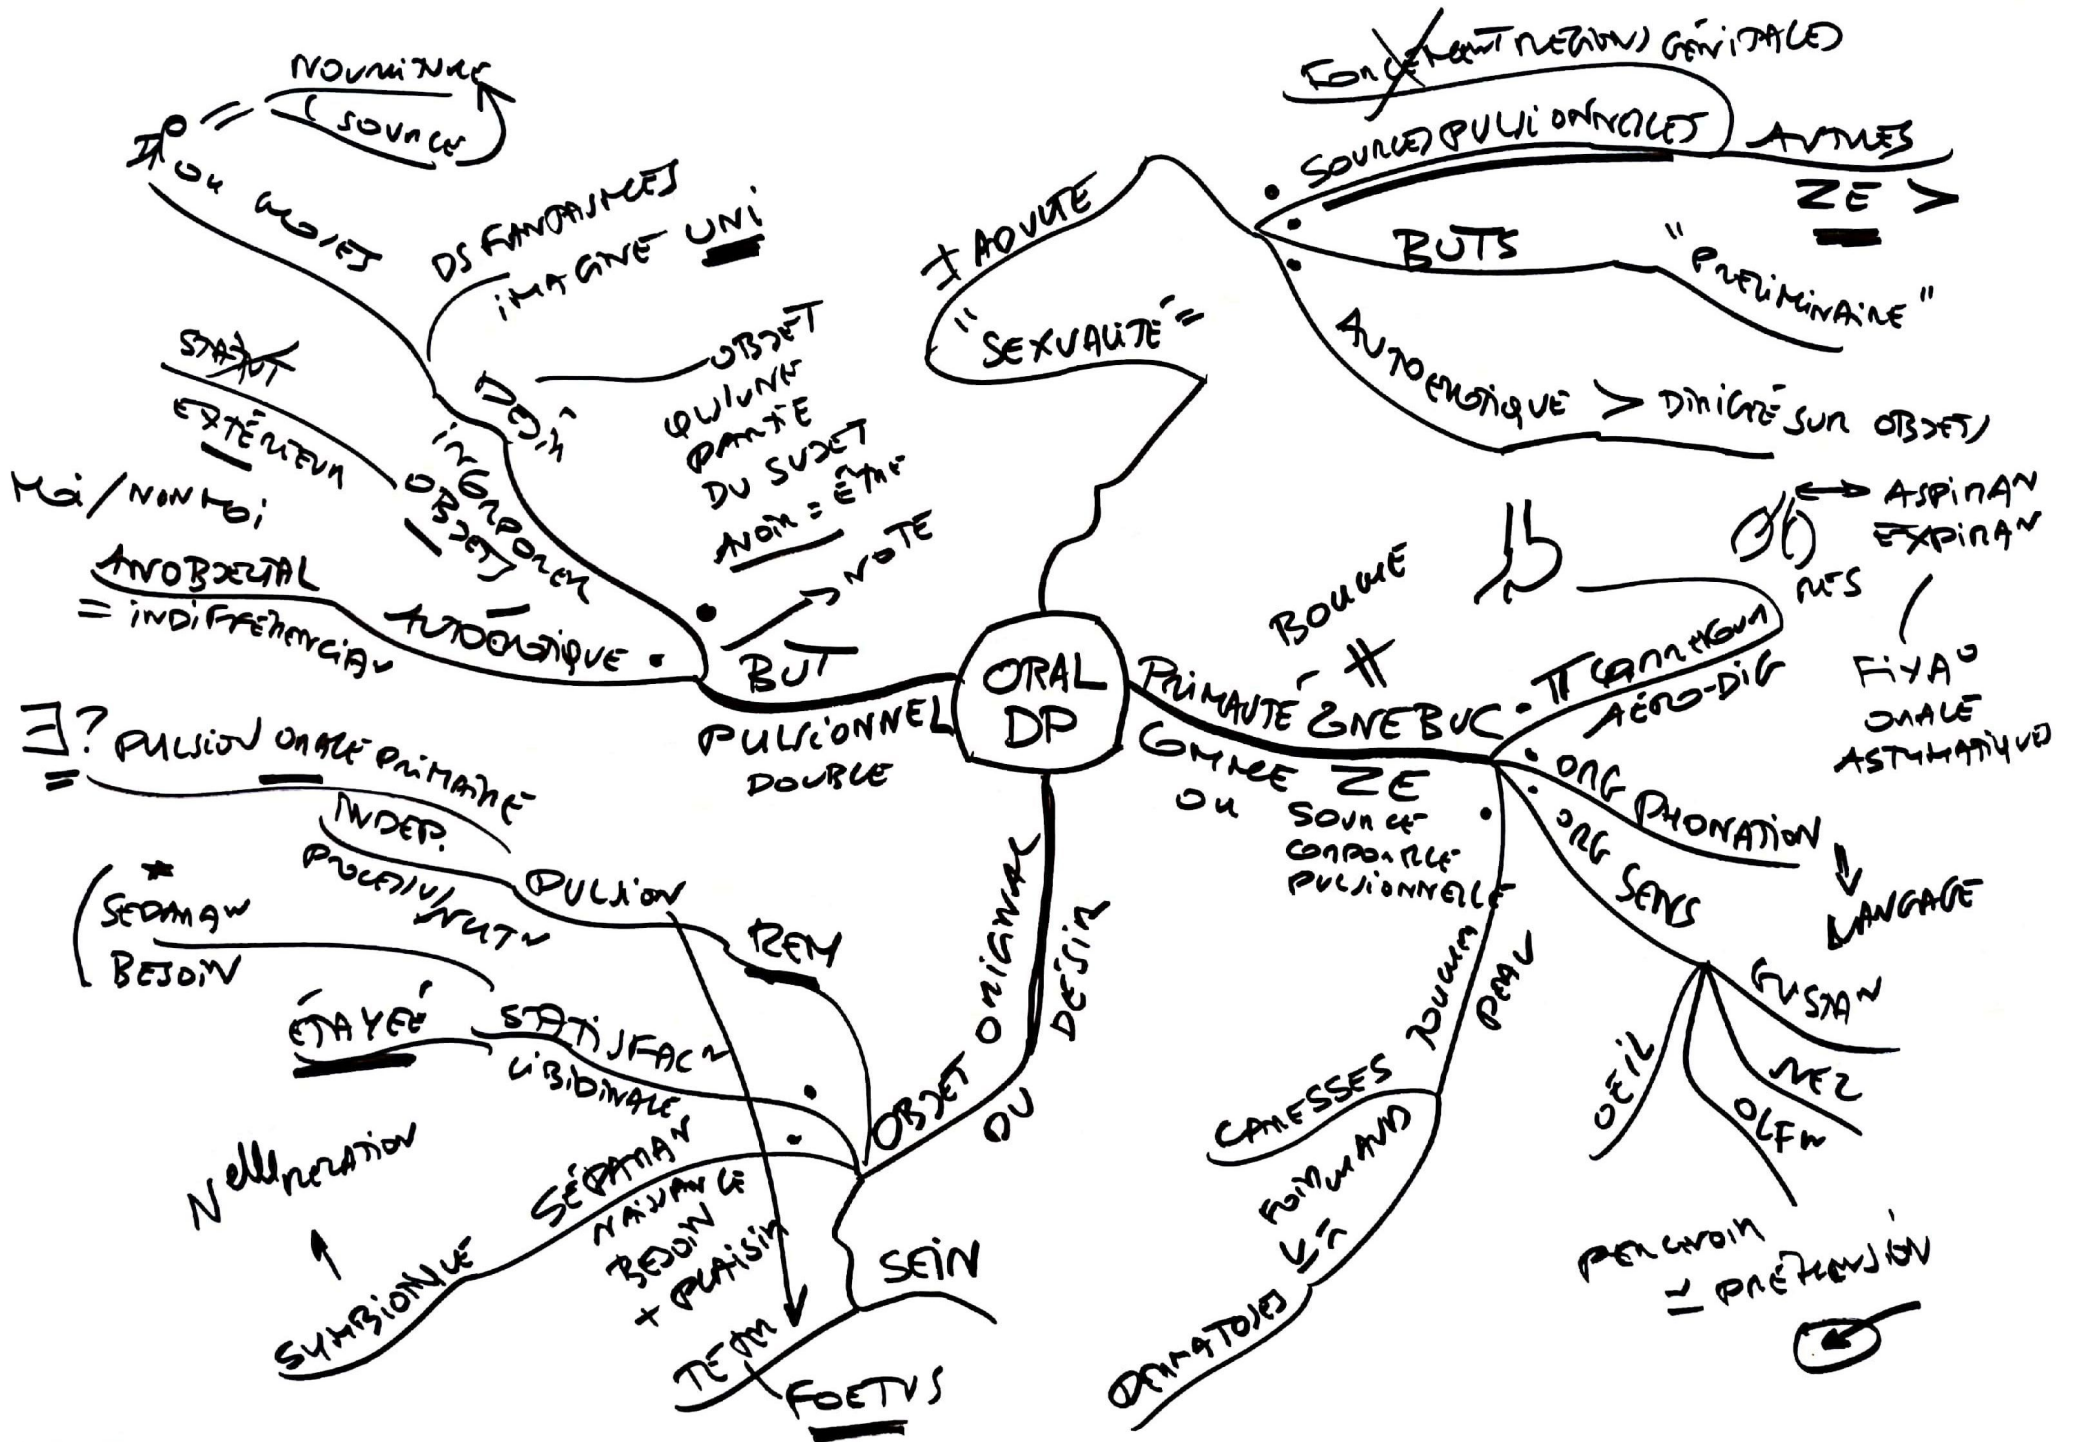 ORAL
DP
± ADULTE
"SEXUALITÉ" =
RÉGIONS GÉNITALES
SOURCES PULSIONNELLES
AUTRES
ZE >
BUTS
"PRELIMINAIRE"
AUTOEROTIQUE > DIRIGÉ SUR OBJETS
PRIMAUTÉ
BOUCHE
ZE
COMME
OU
SOURCE
CORPORELLE
PULSIONNELLE
CARREFOUR
AÉRO-DIG
RES
ASPIRAN
EXPIRAN
FIXA°
ORALE
ASTHMATIQUES
ORG PHONATION
LANGAGE
ORG SENS
GUSTAN
NEZ
OLFN
OEIL
PERCEVOIR
= PRÉHENSION
TOUCHER
PEAU
CARESSES
DERMATOSES
OBJET ORIGINAL
DU DÉSIR
SEIN
TETER
FOETUS
REM
PULSION
INDEP.
PROCESSUS NUTN
∃? PULSION ORALE PRIMAIRE
SATISFACN
LIBIDINALE
ÉTAYÉE
BESOIN
SÉPARAN
NAISSANCE
BESOIN
+ PLAISIR
SYMBIOTIQUE
BUT
PULSIONNEL
DOUBLE
NOTE
AUTOÉROTIQUE
ANOBJECTAL
= INDIFFÉRENCIAN
MOI/NON MOI
INCORPORER
OBJETS
STATUT
EXTÉRIEUR
DESIR
OBJET
QU'UNE
PARTIE
DU SUJET
AVOIR = ÊTRE
DS FANTASMES
IMAGINE UNI
NOURRITURE
(SOURCE